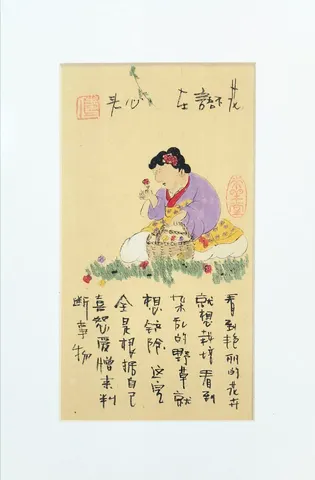 花不語在心
看到艳丽的花卉
就想栽培看到
杂乱的野草就
想铲除这完
全是根据自己
喜怒爱憎来判
断事物